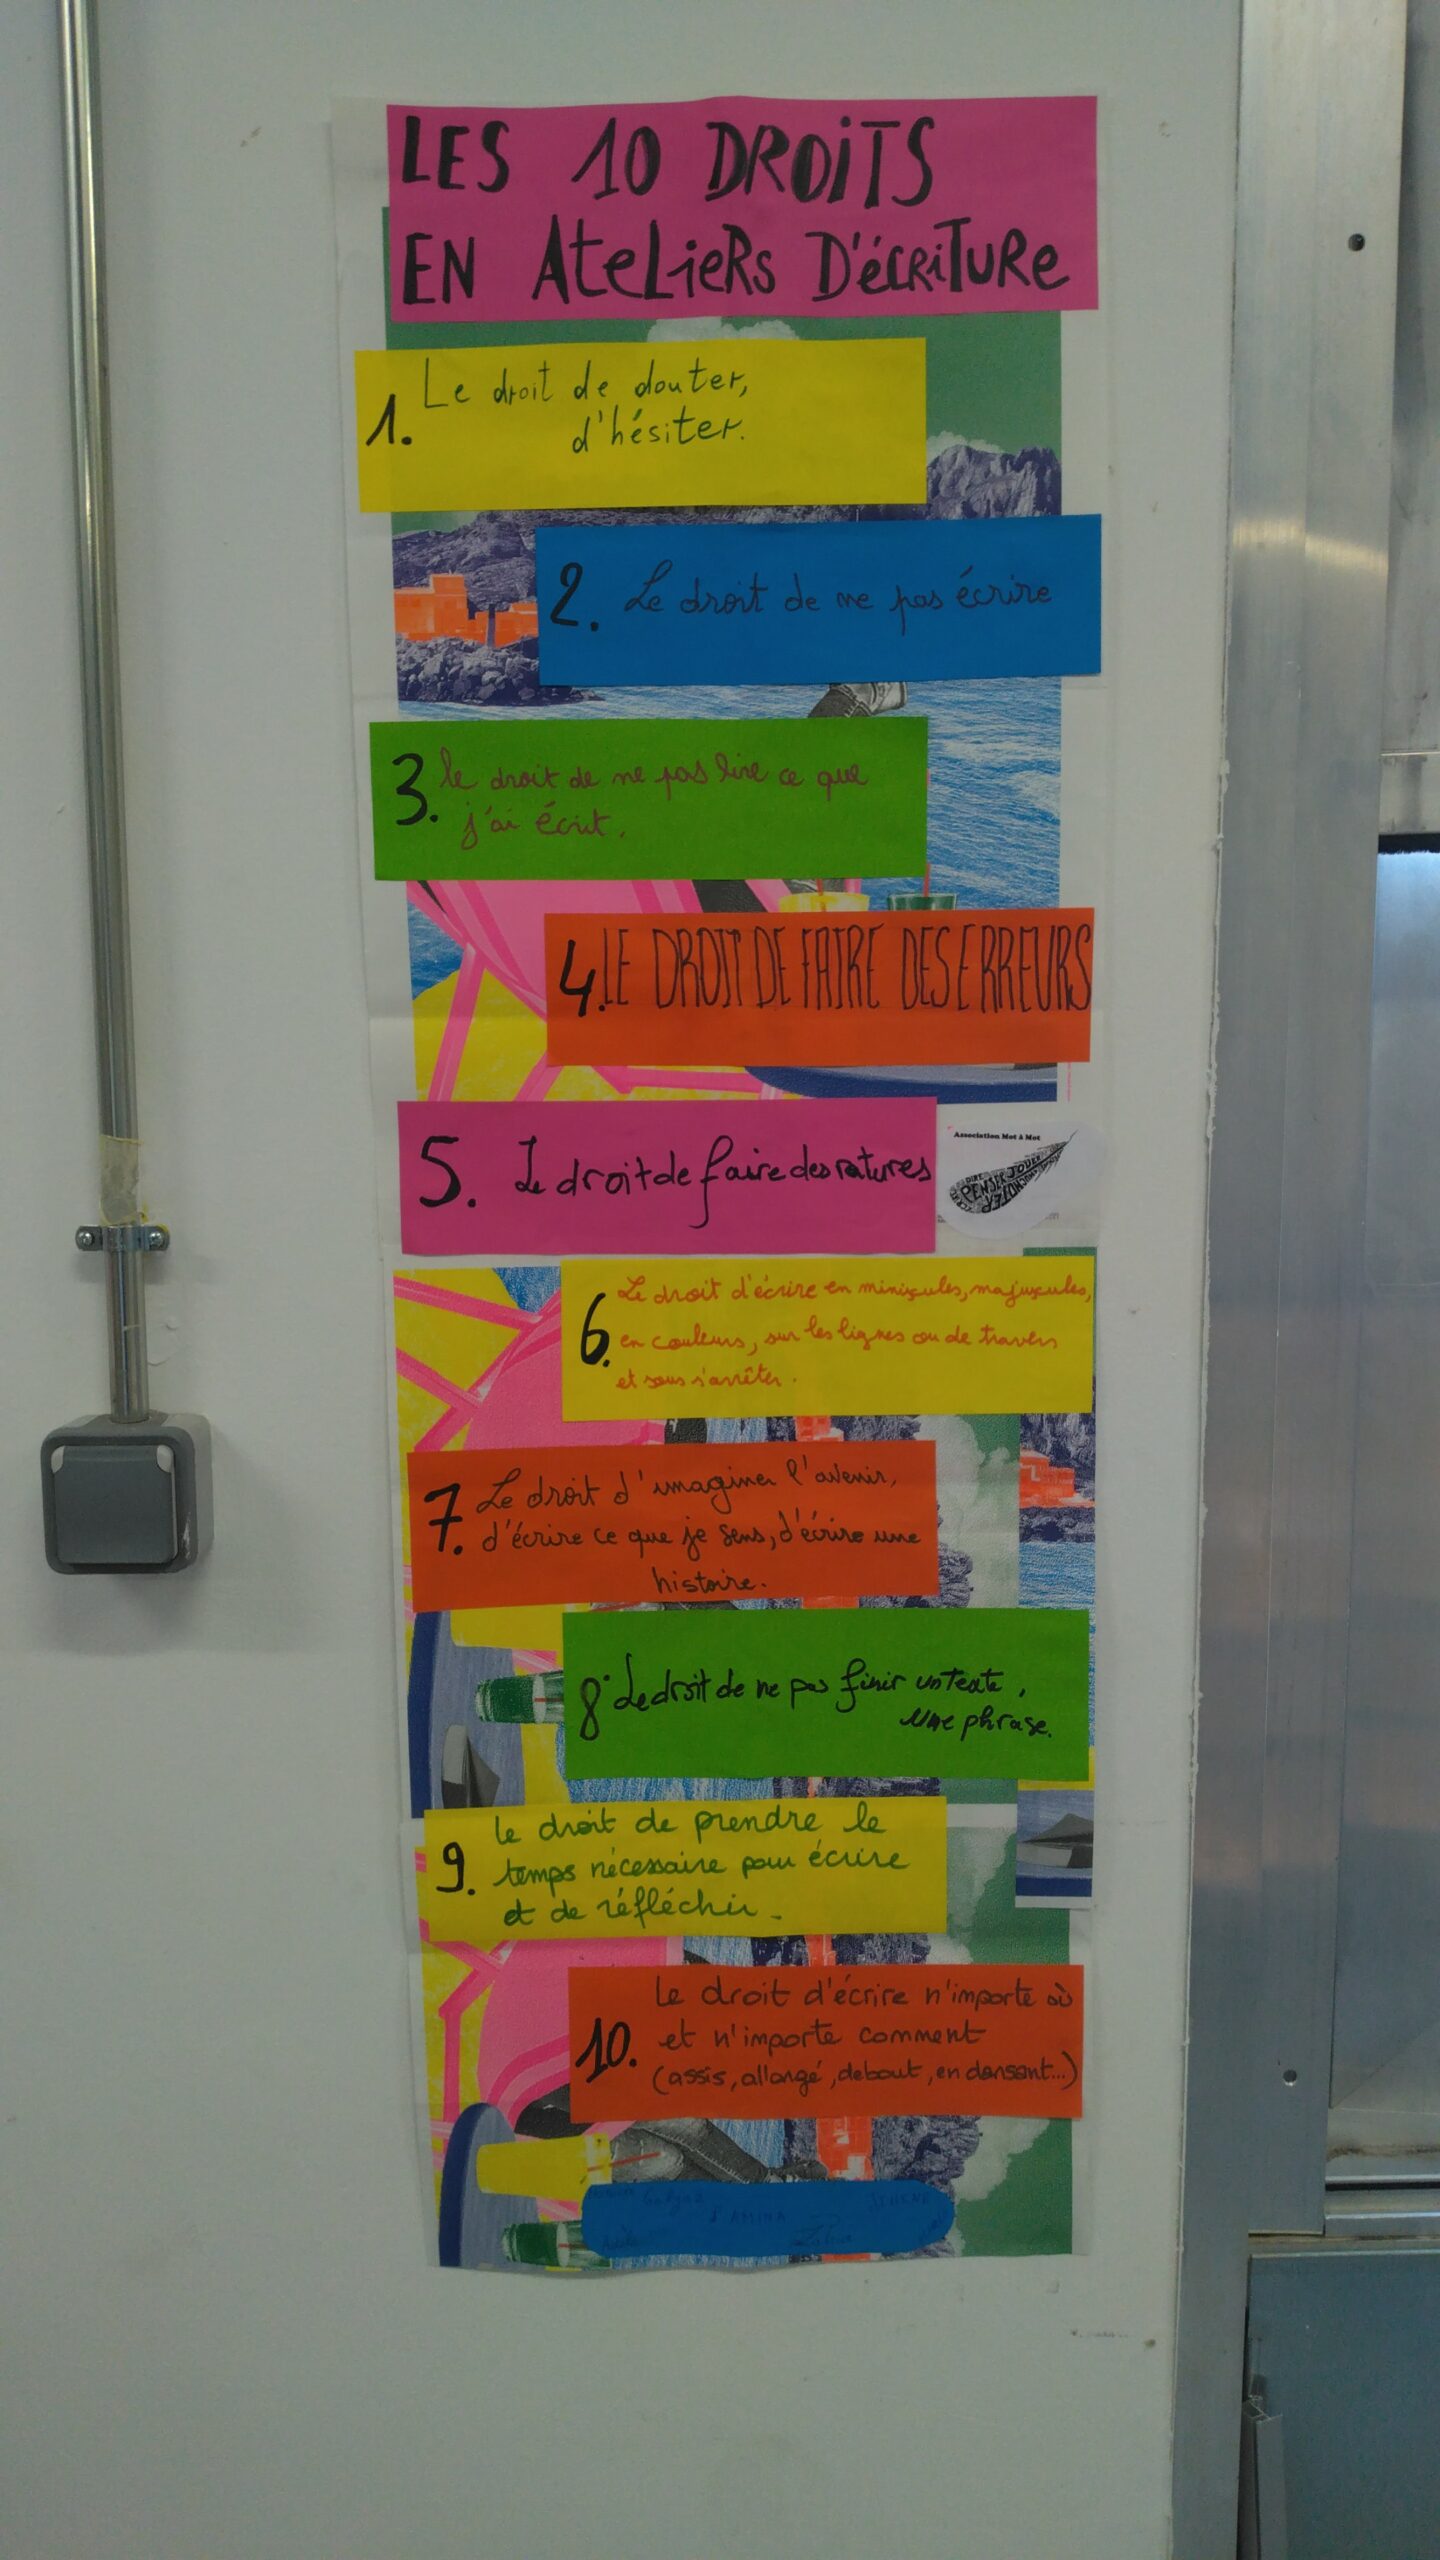 LES 10 DROITS
EN ATELIERS D'éCRITURE
1. Le droit de douter,
d'hésiter.
2. Le droit de ne pas écrire
3. le droit de ne pas lire ce que
j'ai écrit.
4. LE DROIT DE FAIRE DES ERREURS
5. Le droit de faire des ratures
Association Mot à Mot
DIRE
PENSER JOUER
6. Le droit d'écrire en miniscules, majuscules,
en couleurs, sur les lignes ou de travers
et sans s'arrêter.
7. Le droit d'imaginer l'avenir,
d'écrire ce que je sens, d'écrire une
histoire.
8. Le droit de ne pas finir un texte,
une phrase.
9. le droit de prendre le
temps nécessaire pour écrire
et de réfléchir.
10. Le droit d'écrire n'importe où
et n'importe comment
(assis, allongé, debout, en dansant...)
AMINA